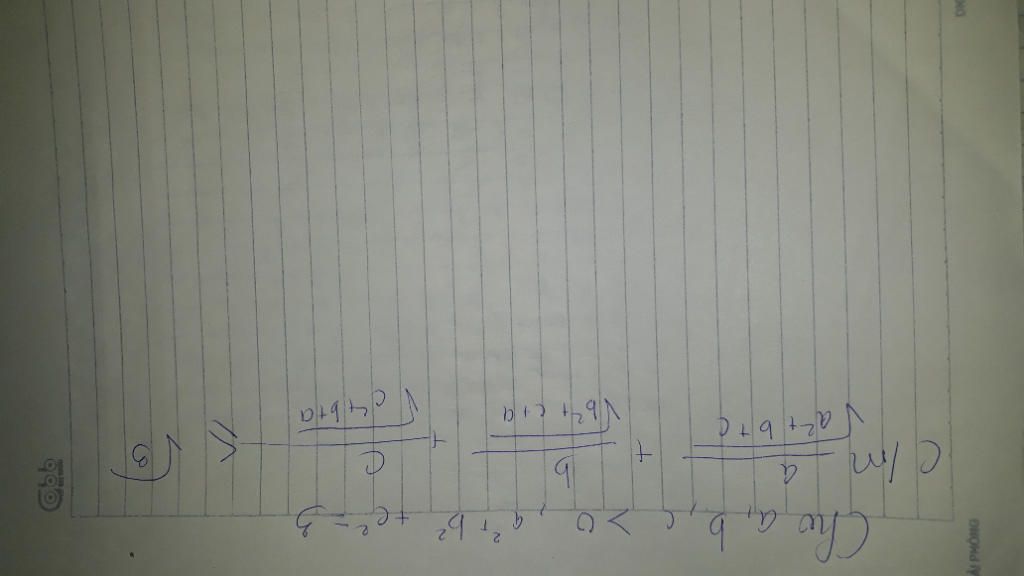 Cho a, b, c > 0, a²+b²+c²=3
C/m a/√(a²+b+c) + b/√(b²+c+a) + c/√(c²+b+a) ≤ √3
ẢI PHÒNG